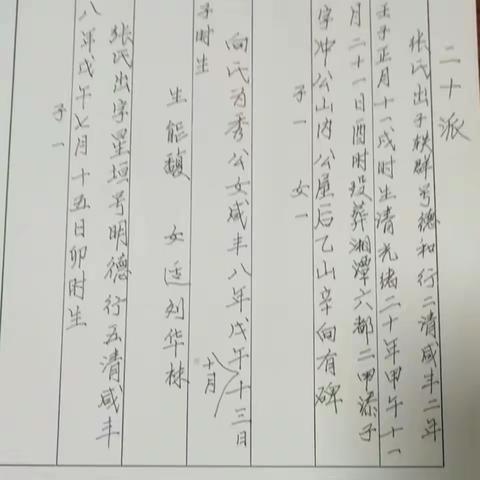 二十派
张氏出子秩群号德和行二清咸丰二年
壬子正月十一戌时生清光绪二十年甲午十一
月二十一日酉时殁葬湘潭六都二甲添子
字冲公山内公屋后乙山辛向有碑
子一 女一
向氏为秀公女咸丰八年戊午十三日
十月
子时生
生能馥 女适刘华栋
张氏出字星垣号明德行五清咸丰
八年戊午七月十五日卯时生
子一